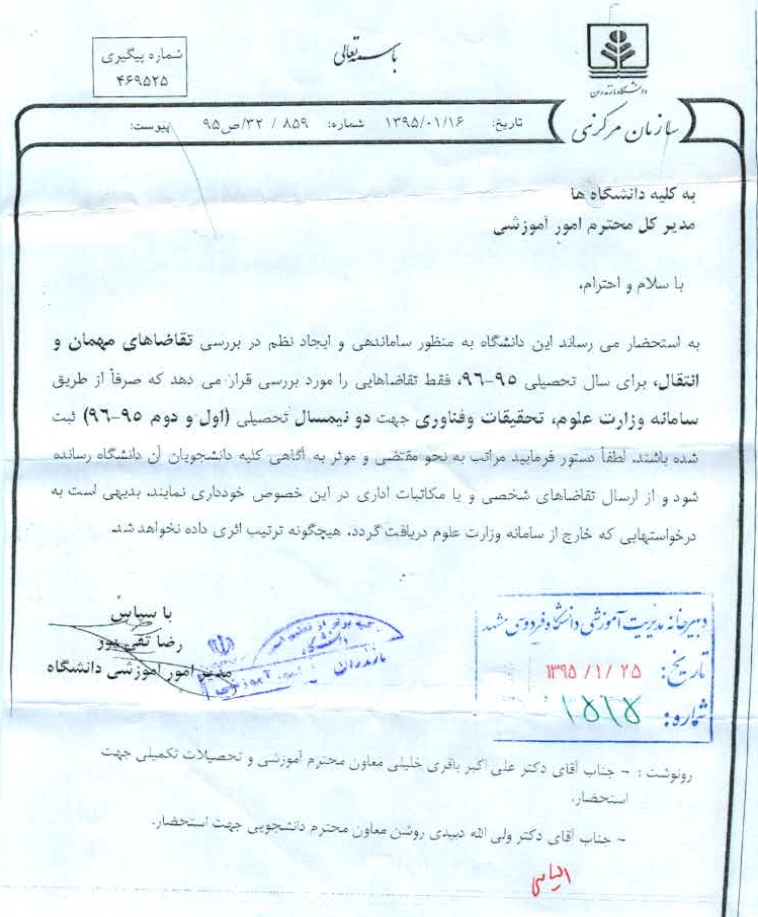 باسمه تعالی
شماره پیگیری
۴۶۹۵۲۵
دانشگاه مازندران
سازمان مرکزی
تاریخ: ۱۳۹۵/۰۱/۱۶ شماره: ۸۵۹ / ۳۲/ص۹۵ پیوست:
به کلیه دانشگاه ها
مدیر کل محترم امور آموزشی
با سلام و احترام.
به استحضار می رساند این دانشگاه به منظور ساماندهی و ایجاد نظم در بررسی تقاضاهای مهمان و
انتقال، برای سال تحصیلی ۹۵-۹۶، فقط تقاضاهایی را مورد بررسی قرار می دهد که صرفاً از طریق
سامانه وزارت علوم، تحقیقات وفناوری جهت دو نیمسال تحصیلی (اول و دوم ۹۵-۹۶) ثبت
شده باشند. لطفاً دستور فرمایید مراتب به نحو مقتضی و موثر به آگاهی کلیه دانشجویان آن دانشگاه رسانده
شود و از ارسال تقاضاهای شخصی و یا مکاتبات اداری در این خصوص خودداری نمایند. بدیهی است به
درخواستهایی که خارج از سامانه وزارت علوم دریافت گردد، هیچگونه ترتیب اثری داده نخواهد شد.
با سپاس
رضا تقی پور
مدیر امور آموزشی دانشگاه
دانشگاه
مازندران
امور آموزشی
دبیرخانه مدیریت آموزشی دانشگاه فردوسی مشهد
تاریخ: ۱۳۹۵ /۱ / ۲۵
شماره:
رونوشت : - جناب آقای دکتر علی اکبر باقری خلیلی معاون محترم آموزشی و تحصیلات تکمیلی جهت
استحضار.
- جناب آقای دکتر ولی الله دبیدی روشن معاون محترم دانشجویی جهت استحضار.